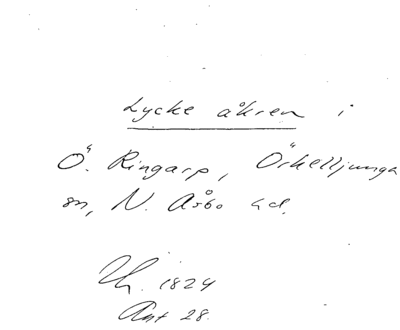 Lycke åkren i
Ö. Ringarp, Örkelljunga
sn, N. Åsbo hd.
Th. 1824
Ant 28.